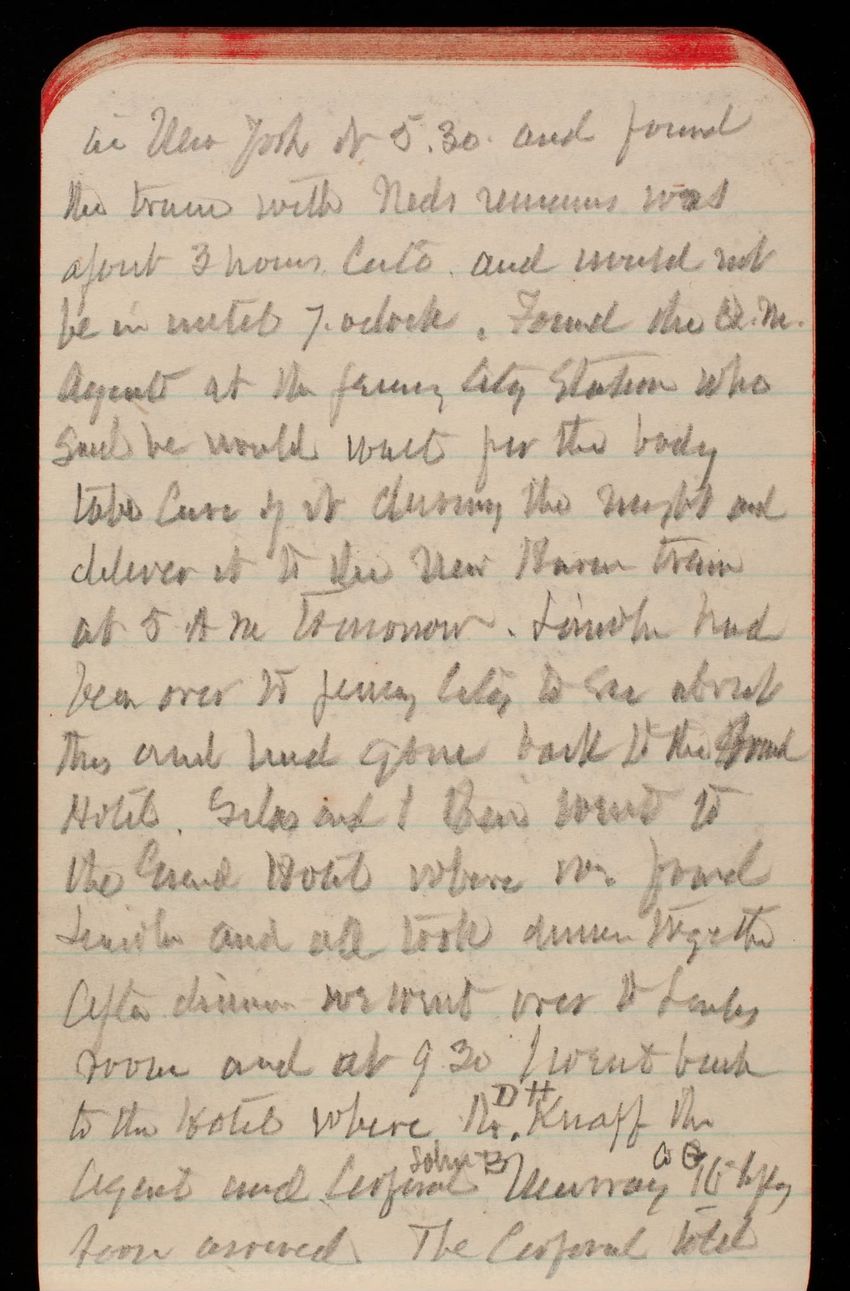 in New York at 5.30. and found
the train with Neds remains was
about 3 hours late. and would not
be in until 7. oclock. Found the Q.M.
Agent at the Jersey City Station who
said he would wait for the body
take care of it during the night and
deliver it to the New Haven train
at 5 A M tomorrow. Lincoln had
been over to Jersey City to see about
this and had gone back to the Grand
Hotel. Silas and I then went to
the Grand Hotel where we found
Lincoln and all took dinner together
After dinner we went over to
room and at 9 30 I went back
to the Hotel where Mr. D H Knapp the
Agent and Corporal John B Murray Co G 16 Infy
soon arrived. The Corporal told